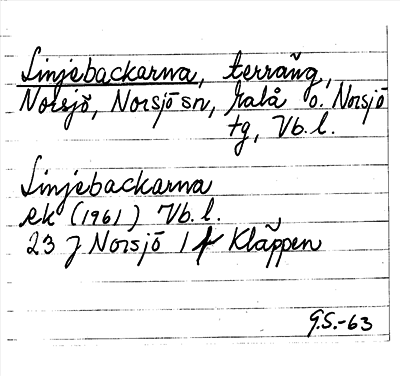 Linjebackarna, terräng,
Norsjö, Norsjö sn, Malå o. Norsjö
tg, Vb. l.
Linjebackarna
ek (1961) Vb. l.
23 J Norsjö 1 f Kläppen
G.S.-63